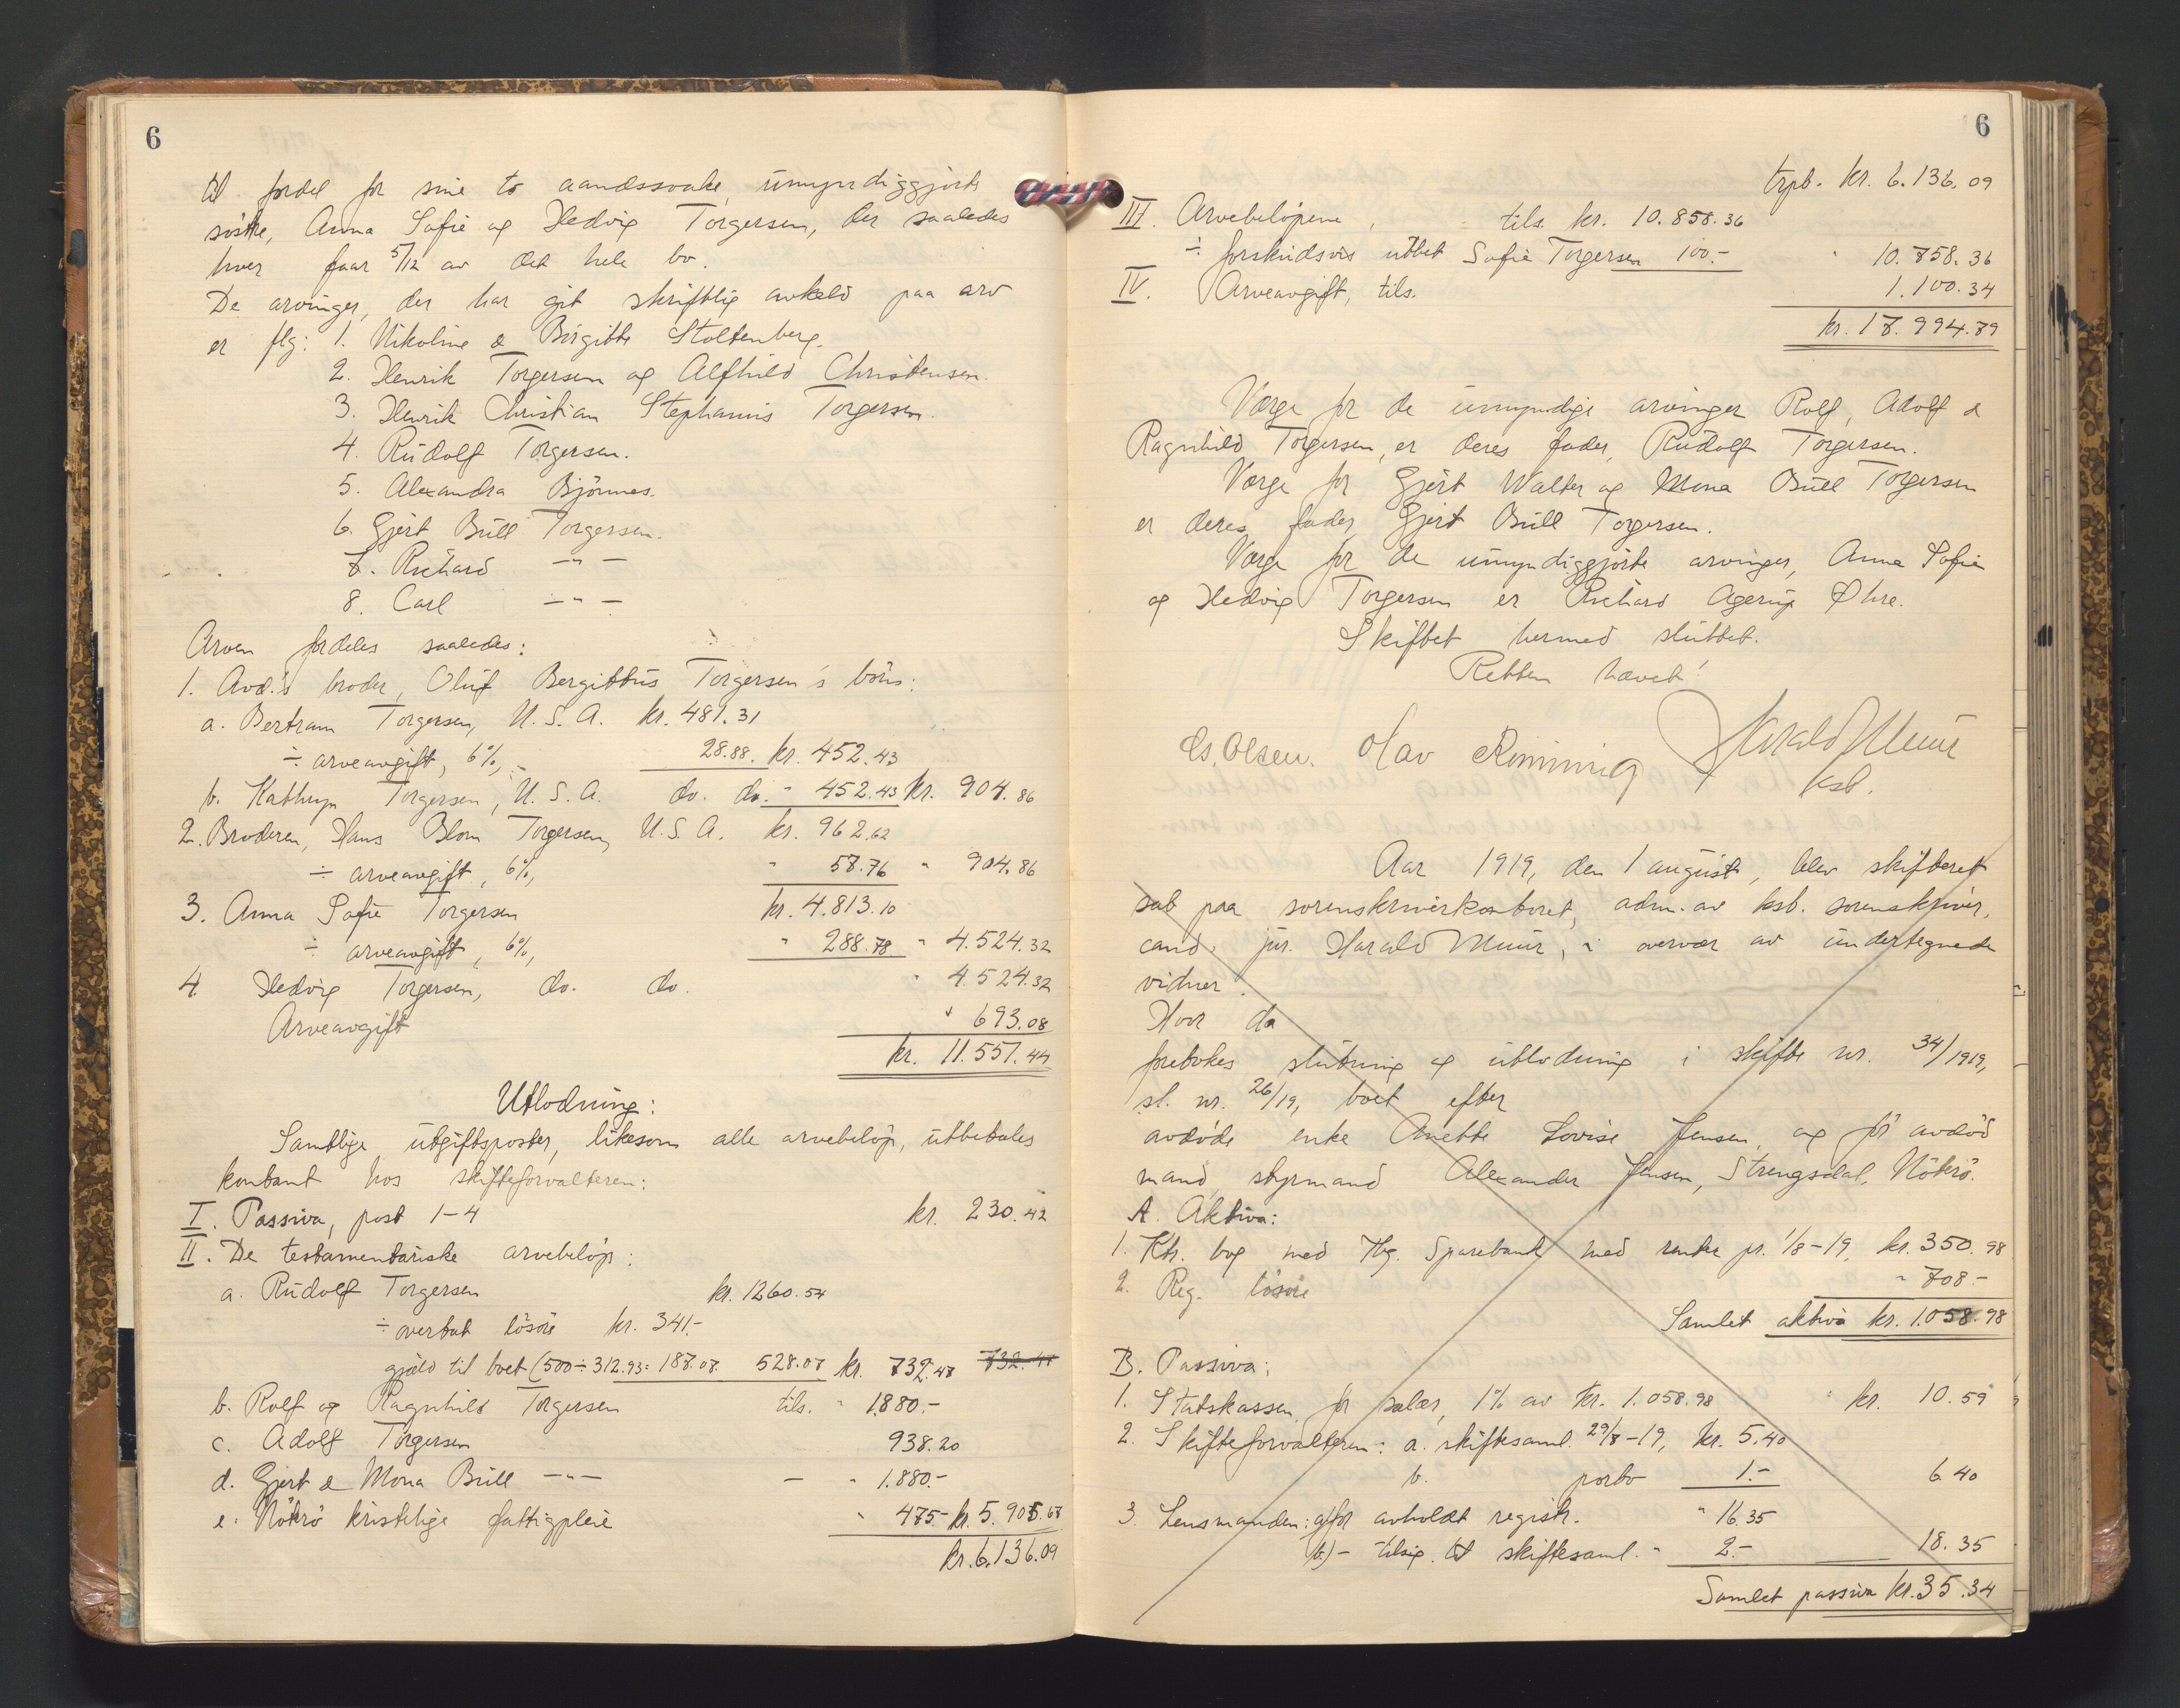 6
til fordel for sine to aandssvake, umyndiggjorte
søstre, Anna Sofie og Hedvig Torgersen, der saaledes
hver faar 5/12 av det hele bo.
De arvinger, der har git skriftlig avkald paa arv
er flg: 1. Nikoline & Birgitte Stoltenberg.
2. Henrik Torgersen og Alfhild Christensen.
3. Henrik Christian Stephanus Torgersen.
4. Rudolf Torgersen.
5. Alexandra Bjönnes.
6. Gjert Bull Torgersen.
7. Richard —"—
8. Carl —"—
Arven fordeles saaledes:
1. Avd.'s broder, Oluf Bergittus Torgersen's börn:
a. Bertram Torgersen, U.S.A. kr. 481.31
÷ arveavgift, 6%, - 28.88. kr. 452.43
b. Kathryn Torgersen, U.S.A. do. do. " 452.43 kr. 904.86
2. Broderen, Hans Blom Torgersen, U.S.A. kr. 962.62
÷ arveavgift, 6%, " 57.76 " 904.86
3. Anna Sofie Torgersen kr. 4.813.10
÷ arveavgift, 6%, " 288.78 " 4.524.32
4. Hedvig Torgersen, do. do. " 4.524.32
Arveavgift " 693.08
kr. 11.551.44
Utlodning:
Samtlige utgiftsposter, likesom alle arvebeløp, utbetales
kontant hos skifteforvalteren:
I. Passiva, post 1-4 kr. 230.42
II. De testamentariske arvebeløp:
a. Rudolf Torgersen kr. 1260.54
÷ overtat lösöre kr. 341.-
gjæld til boet (500÷312.93= 187.07 528.07 kr. 732.47 732.47
b. Rolf og Ragnhild Torgersen tils. " 1.880.-
c. Adolf Torgersen 938.20
d. Gjert & Mona Bull —"— — " 1.880.-
e. Nøtterø kristelige fattigpleie " 475.- kr. 5.905.67
kr. 6.136.09
6
trpt. kr. 6.136.09
III. Arvebeløpene, tils. kr. 10.858.36
÷ forskudsvis utbet. Sofie Torgersen 100.- " 10.758.36
IV. Arveavgift, tils. 1.100.34
kr. 17.994.79
Værge for de umyndige arvinger Rolf, Adolf &
Ragnhild Torgersen, er deres fader, Rudolf Torgersen.
Værge for Gjert Walter og Mona Bull Torgersen
er deres fader, Gjert Bull Torgersen.
Værge for de umyndiggjorte arvinger, Anna Sofie
og Hedvig Torgersen er Richard Agerup Øhre.
Skiftet hermed sluttet.
Retten hævet!
Olsen. Olav Rimming Harald Muur
ksb.
Aar 1919, den 1 august, blev skifteret
sat paa sorenskriverkontoret, adm. av kst. sorenskriver,
cand. jur. Harald Muur, i overvær av undertegnede
vidner.
Hvor da
foretokes slutning og utlodning i skifte nr. 34/1919,
sl. nr. 26/19, boet efter
avdøde enke Anette Lovise Jensen, og før avdød
mand, styrmand Alexander Jensen, Strengsdal, Nøterø.
A. Aktiva:
1. Ktr. bog med Tbg. Sparebank med renter pr. 1/8-19, kr. 350.98
2. Reg. lösöre " 708-
Samlet aktiva kr. 1.058.98
B. Passiva:
1. Statskassen, for salær, 1% av kr. 1.058.98 kr. 10.59
2. Skifteforvalteren: a. skiftesaml. 29/8-19, kr. 5.40
b. porto 1.- 6.40
3. Lensmanden: a) for avholdt registr. " 16.35
b) - tilsig. til skiftesaml. " 2.- 18.35
Samlet passiva kr. 35.34